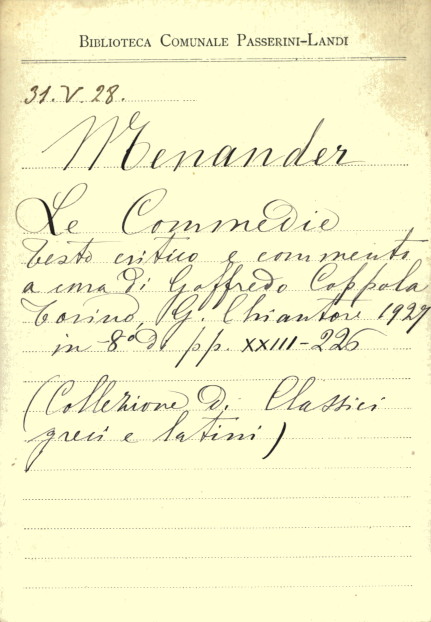 BIBLIOTECA COMUNALE PASSERINI-LANDI
31.V.28.
Menander
Le Commedie
testo critico e commento
a cura di Goffredo Coppola
Torino, G. Chiantore 1927
in -8° di pp. XXIII-226
(Collezione di Classici
greci e latini)